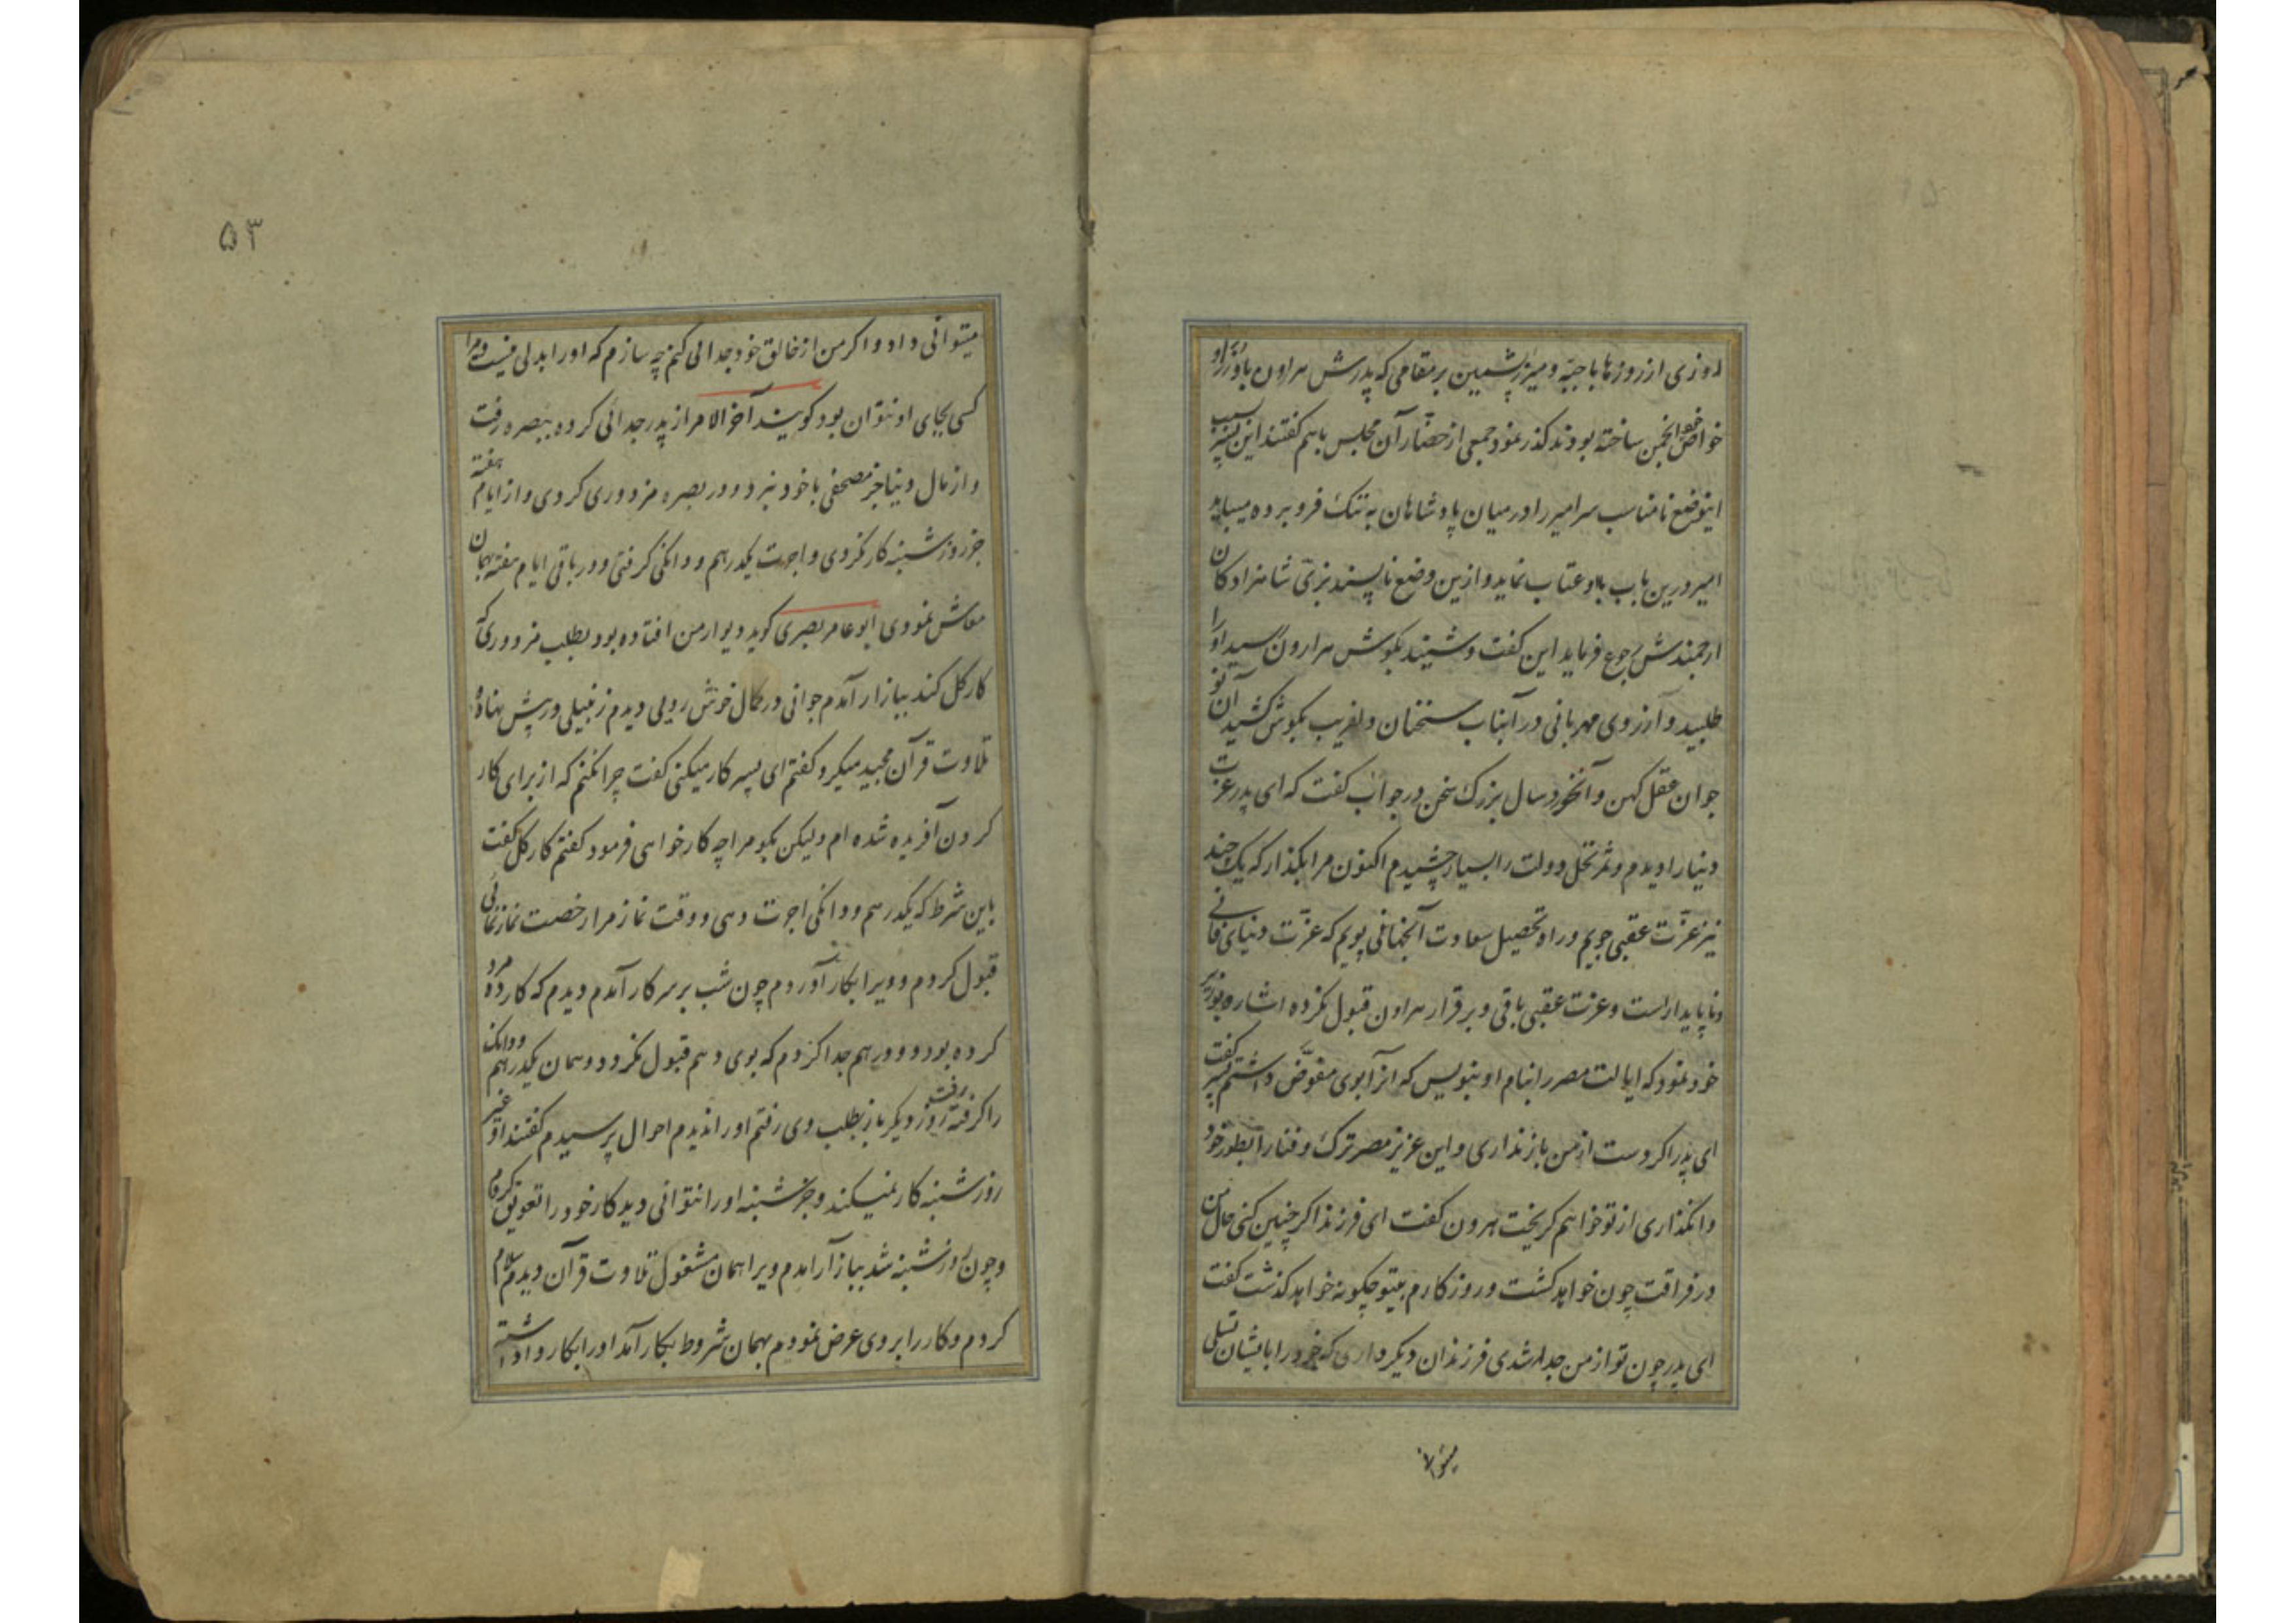 روزی از روزها با جبّه و میزر پشمین بر مقامی که پدرش هرون با وزرا و
خواص خود انجمن ساخته بودند گذر نمود جمعی از حضّار آن مجلس باهم گفتند این پسر بسبب
اینوضع نامناسب سر امیر را در میان پادشاهان به ننگ فرو برده میباید
امیر درین باب باو عتاب نماید و ازین وضع ناپسند بزیّ شاهزادکان
ارجمندش رجوع فرماید این گفت و شنید بگوش هرون رسید او را
طلبید و از روی مهربانی در آنباب سخنان دلفریب بگوش کشید آن نو
جوان عقل کهن و آنخورد سال بزرک سخن در جواب گفت که ای پدر عزت
دنیا را دیدم و ثمر نخل دولت را بسیار چشیدم اکنون مرا بگذار که یک چند
نیز عزّت عقبی جویم و راه تحصیل سعادت آنجهانی پویم که عزّت دنیای فانی
و ناپایدار است و عزت عقبی باقی و برقرار هرون قبول نکرده اشاره بوزیر
خود نمود که ایالت مصر را بنام او بنویس که آنرا بوی مفوّض داشتم پسر گفت
ای پدر اگر دست از من بازنداری و این عزیز مصر ترک و فنا را بطور خود
وانگذاری از تو خواهم گریخت هرون گفت ای فرزند اگر چنین کنی حال من
در فراقت چون خواهد گشت و روزگارم بیتو چگونه خواهد گذشت گفت
ای پدر چون تو از من جدا شدی فرزندان دیگر داری که خود را بایشان تسلی
میتوانی
۵۳
میتوانی داد و اگر من از خالق خود جدائی کنم چه سازم که او را بدلی نیست و مرا
کسی بجای او نتوان بود گویند آخر الامر از پدر جدائی کرده ببصره رفت
و از مال دنیا جز مصحفی با خود نبرد و در بصره مزدوری کردی و از ایام هفته
جز روز شنبه کار نکردی و اجرت یکدرهم و دانگی گرفتی و در باقی ایام هفته بهمان
معاش نمودی ابو عامر بصری گوید دیوار من افتاده بود بطلب مزدوری که
کار گل کند ببازار آمدم جوانی در کمال خوش رویی دیدم زنبیلی در پیش نهاده
تلاوت قرآن مجید میکرد گفتم ای پسر کار میکنی گفت چرا نکنم که از برای کار
کردن آفریده شده ام ولیکن بگو مرا چه کار خواهی فرمود گفتم کار گل گفت
باین شرط که یکدرهم و دانگی اجرت دهی و وقت نماز مرا رخصت نماز نمائی
قبول کردم و ویرا بکار آوردم چون شب بر سر کار آمدم دیدم که کار ده مرد
کرده بود و دو درهم جدا کردم که بوی دهم قبول نکرد و همان یکدرهم و دانک
را گرفته رفت روز دیگر باز بطلب وی رفتم او را ندیدم احوال پرسیدم گفتند او غیر
روز شنبه کار نمیکند و جز شنبه او را نتوانی دید کار خود را تعویق کردم
و چون روز شنبه شد ببازار آمدم ویرا همان مشغول تلاوت قرآن دیدم سلام
کردم و کار را بروی عرض نمودم بهمان شروط بکار آمد او را بکار واداشته